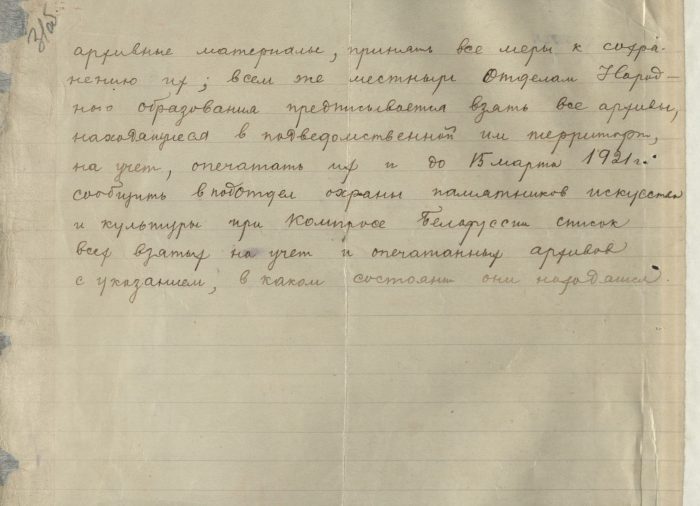 31 об.
архивные материалы, принять все меры к сохра-
нению их; всем же местным Отделам Народ-
ного образования предписывается взять все архивы,
находящиеся в подведомственной им территори,
на учет, опечатать их и до 15 марта 1921 г.
сообщить в подотдел охраны памятников искусства
и культуры при Компросе Белоруссии список
всех взятых на учет и опечатанных архивов
с указанием, в каком состоянии они находятся.